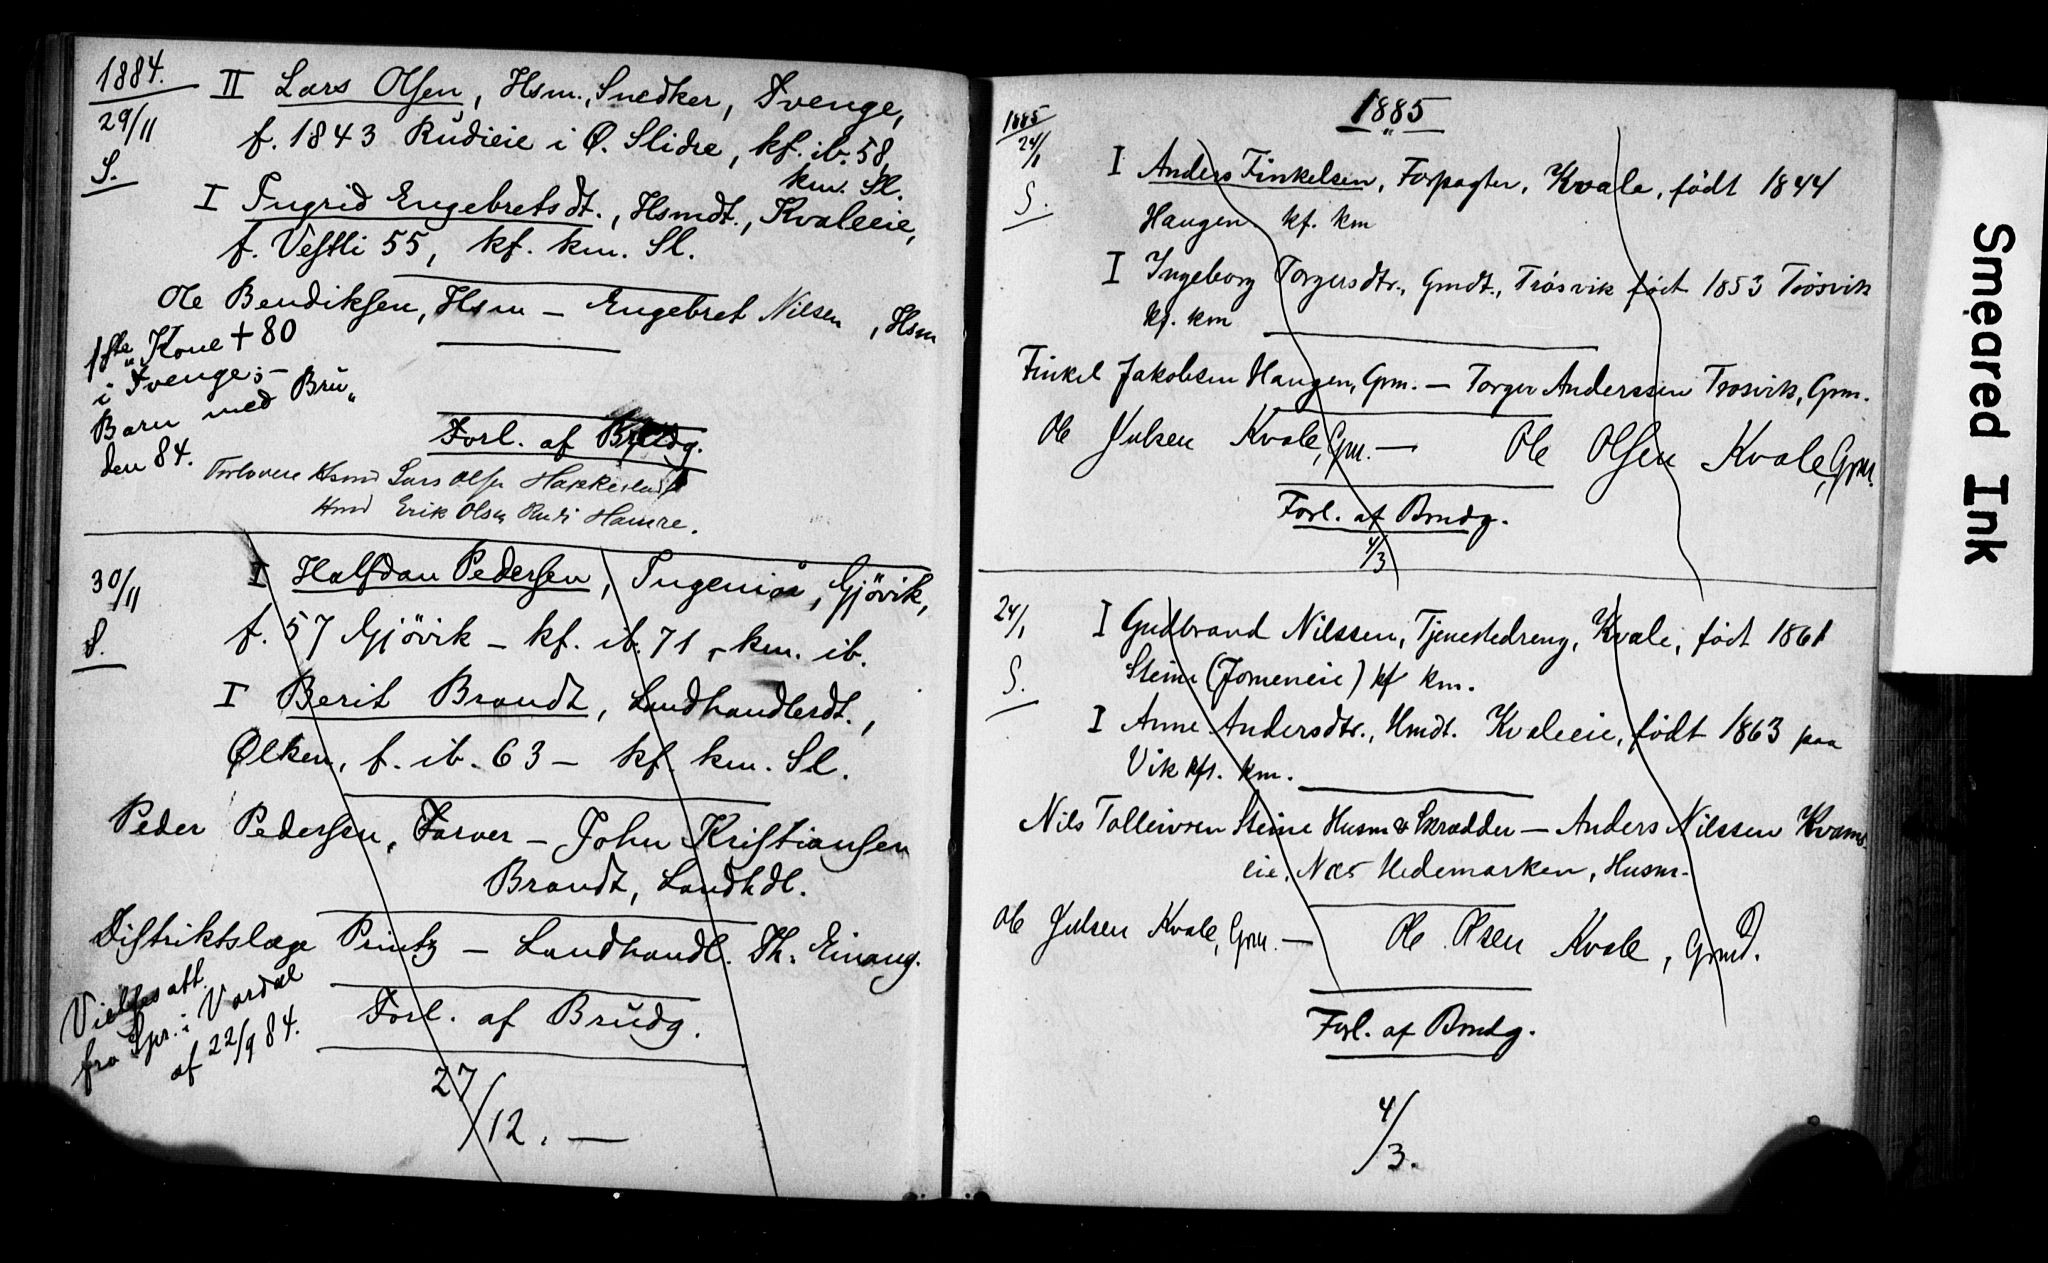 1884.
29/11
S.
II Lars Olsen, Hsm., Snedker, Tvenge,
f. 1843 Rudieie i Ø. Slidre, kf. ib. 58,
km. Sl.
I Ingrid Engebretsdt., Hsmdt., Kvaleeie,
f. Vestli 55, kf. km. Sl.
Ole Bendiksen, Hsm – Engebret Nilsen, Hsm
1ste Kone + 80
i Tvenge; –
Barn med Bru„
den 84.
Forl. af Brudg.
Forlovere Hsmd Lars Olsen
Hmd Erik Olsen Rudi Hamre.
30/11
S.
I Halfdan Pedersen, Ingeniør, Gjövik,
f. 57 Gjövik – kf. ib. 71, km. ib.
I Berit Brandt, Landhandlerdt.,
Ølken, f. ib. 63 – kf. km. Sl.
Peder Pedersen, Farver – John Kristiansen
Brandt, Landhdl.
Distriktslæge Printz – Landhandl. Th. Einang.
Vielsesatt.
fra Spr. i Vardal
af 22/9 84.
Forl. af Brudg.
27/12. –
1885
1885
24/1
S.
I Anders Finkelsen, Forpagter, Kvale, født 1844
Haugen kf. km
I Ingeborg Torgersdtr., Gmdt., Trøsvik født 1853 Trøsvik
kf. km
Finkel Jakobsen Haugen, Grm. – Torger Anderssen Trosvik, Grm.
Ole Julsen Kvale, Grm. – Ole Olsen Kvale, Grm.
Forl. af Brudg.
4/3
24/1
S.
I Gudbrand Nilssen, Tjenestedreng, Kvale, født 1861
Steine (Jomeneie) kf km.
I Anne Andersdtr., Hmdt. Kvaleeie, født 1863 paa
Vik kf. km.
Nils Tolleivsen Steine Husm & Skrædder – Anders Nilssen Kvams-
eie, Næs Hedemarken, Husm.
Ole Julsen Kvale, Grm. – Ole Olsen Kvale, Grmd.
Forl. af Brudg.
4/3.
Smeared Ink